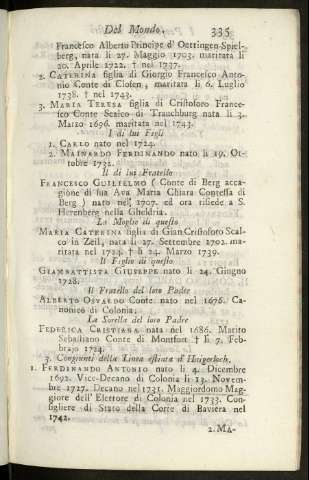 Del Mondo. 335
Francesco Alberto Principe d' Oettingen-Spiel-
berg, nata li 27. Maggio 1703. maritata li
20. Aprile 1722. † nel 1737.
2. CATERINA figlia di Giorgio Francesco Anto-
nio Conte di Closen, maritata li 6. Luglio
1738. † nel 1743.
3. MARIA TERESA figlia di Cristoforo France-
sco Conte Scalco di Trauchburg nata li 3.
Marzo 1696. maritata nel 1743.
I di lui Figli
1. CARLO nato nel 1724.
2. MAINARDO FERDINANDO nato li 19. Ot-
tobre 1732.
Il di lui Fratello
FRANCESCO GUILELMO ( Conte di Berg acca-
gione di sua Ava Maria Chiara Contessa di
Berg ) nato nel 1707. ed ora risiede a S.
Herenberg nella Gheldria.
La Moglie di questo
MARIA CATERINA figlia di Gian Cristoforo Scal-
co in Zeil, nata li 27. Settembre 1702. mar-
itata nel 1724. † li 24. Marzo 1739.
Il Figlio di questo
GIAMBATTISTA GIUSEPPE nato li 24. Giugno
1728.
Il Fratello del loro Padre
ALBERTO OSVARDO Conte: nato nel 1676. Ca-
nonico di Colonia.
La Sorella del loro Padre
FEDERICA CRISTIANA nata nel 1686. Marito
Sebastiano Conte di Montfort † li 7. Feb-
brajo 1724.
3. Congiunti della Linea estinta d' Haigerloch.
1. FERDINANDO ANTONIO nato li 4. Dicembre
1692. Vice-Decano di Colonia li 13. Novem-
bre 1727. Decano nel 1731. Maggiordomo Mag-
giore dell' Elettore di Colonia nel 1733. Con-
sigliere di Stato della Corte di Baviera nel
1742.
2. MA-